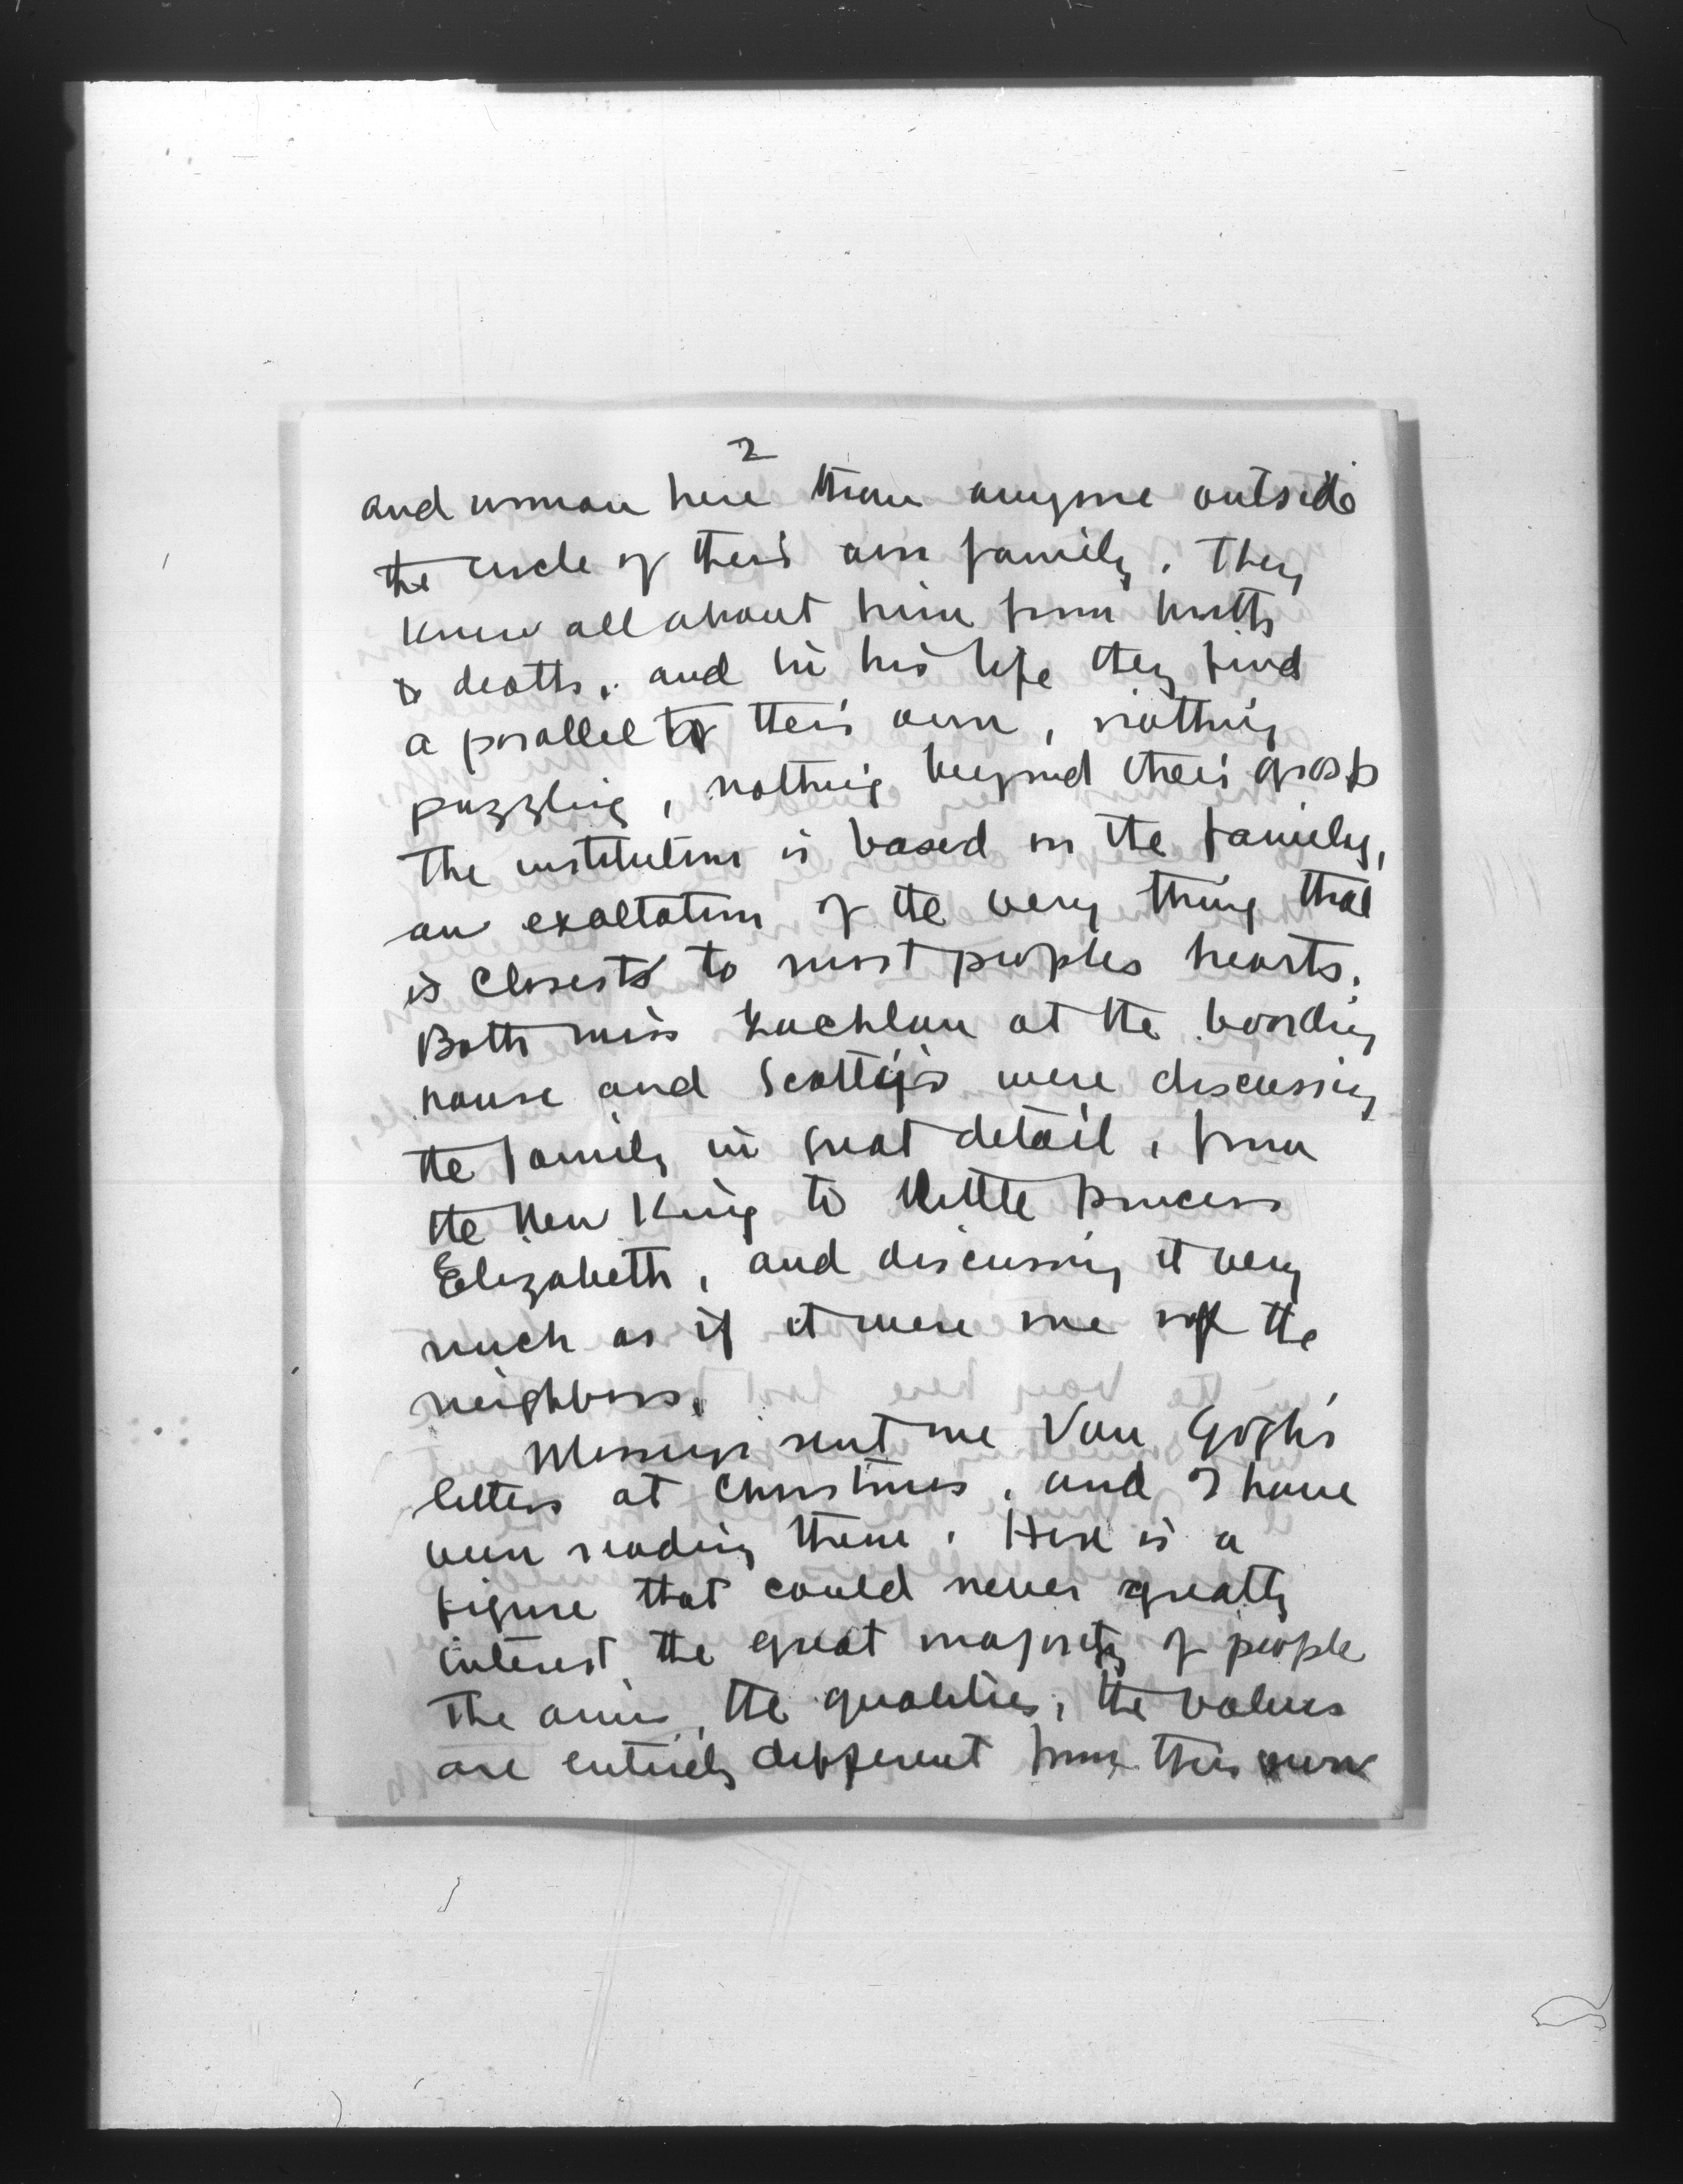 2
and woman here than anyone outside
the circle of their own family. They
knew all about him from birth
to death, and in his life they find
a parallel to their own, nothing
puzzling, nothing beyond their grasp
The institution is based on the family,
an exaltation of the very thing that
is closest to most peoples hearts.
Both miss Lachlan at the boarding
house and Scotty's were discussing
the family in great detail, from
the New King to little princess
Elizabeth, and discussing it very
much as if it were one of the
neighbors.
sent me Van Gogh's
letters at Christmas, and I have
been reading them. Here is a
figure that could never greatly
interest the great majority of people
The aims, the qualities, the values
are entirely different from their own